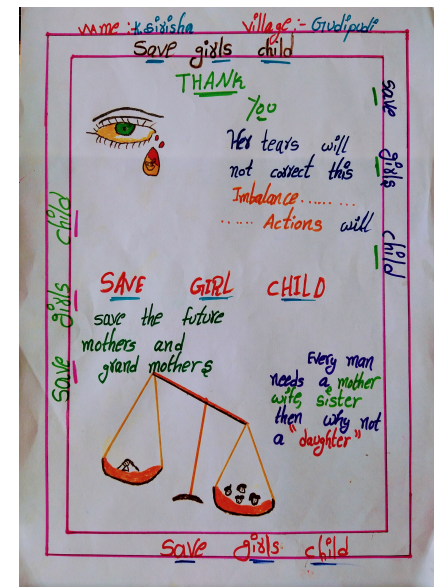 Name :- K.Sirisha Village :- Gudipudi
Save girls child
THANK
You
Her tears will
not correct this
Imbalance......
...... Actions will
save girls child
save girls child
SAVE GIRL CHILD
save the future
mothers and
grand mothers
Every man
needs a mother
wife, sister
then why not
a "daughter"
Save girls child